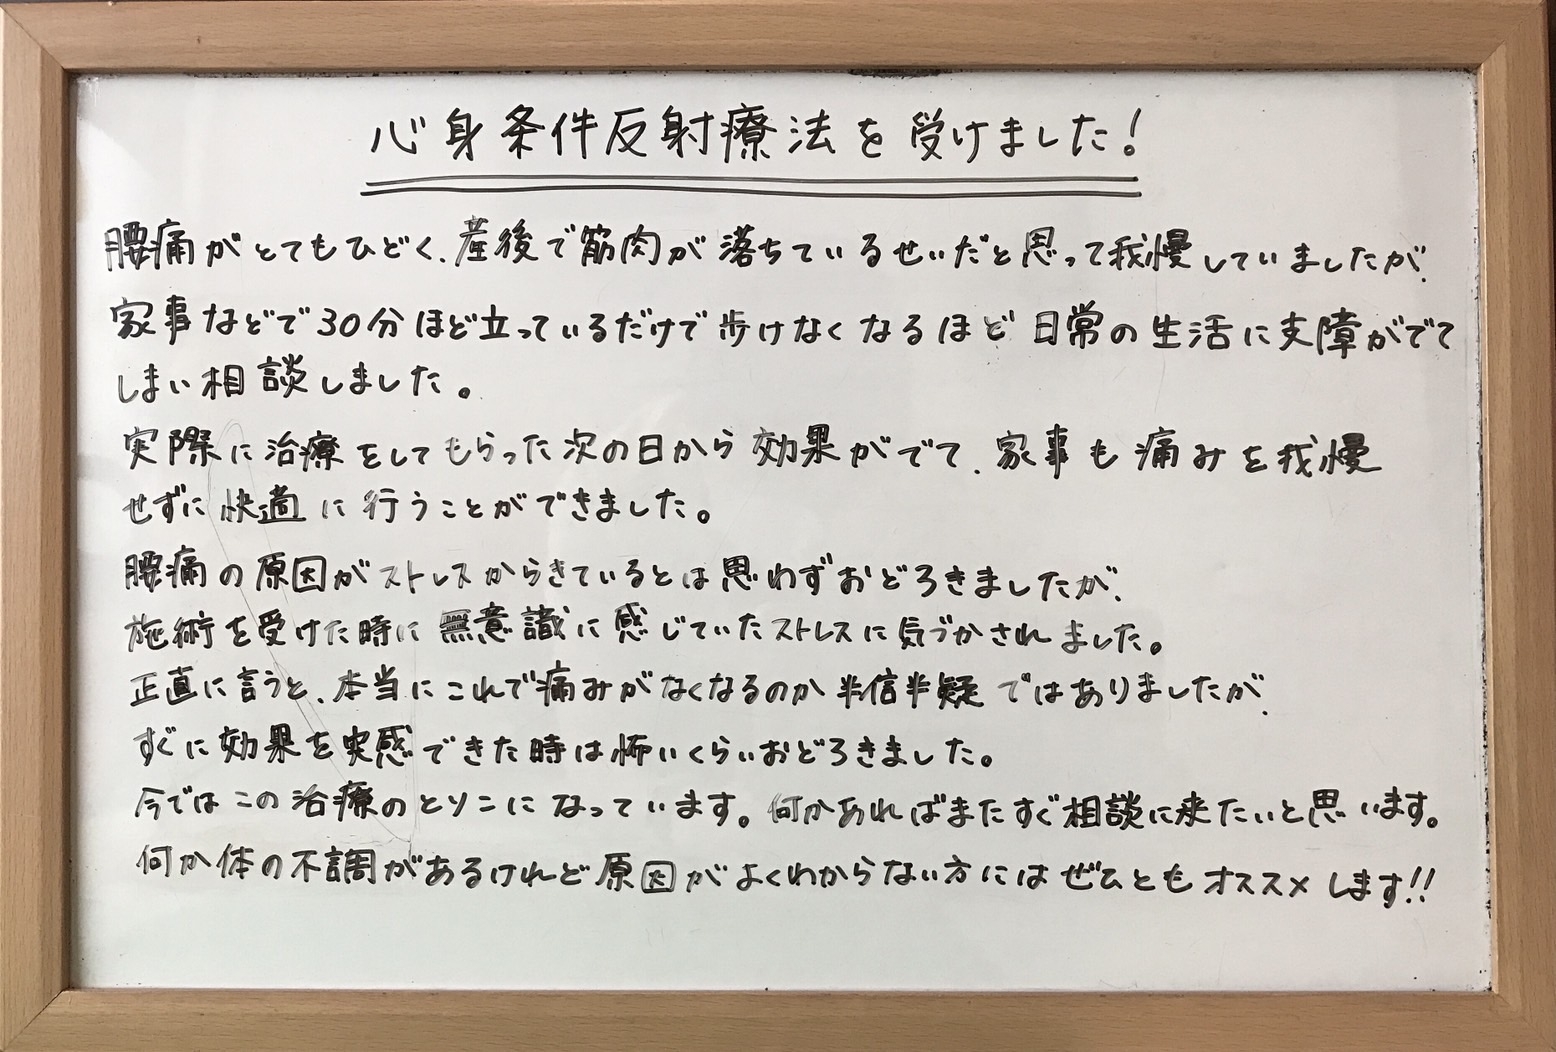 心身条件反射療法を受けました!
腰痛がとてもひどく、産後で筋肉が落ちているせいだと思って我慢していましたが、
家事などで30分ほど立っているだけで歩けなくなるほど日常の生活に支障がでて
しまい相談しました。
実際に治療をしてもらった次の日から効果がでて、家事も痛みを我慢
せずに快適に行うことができました。
腰痛の原因がストレスからきているとは思わずおどろきましたが、
施術を受けた時に無意識に感じていたストレスに気づかされました。
正直に言うと、本当にこれで痛みがなくなるのか半信半疑ではありましたが、
すぐに効果を実感できた時は怖いくらいおどろきました。
今ではこの治療のとりこになっています。何かあればまたすぐ相談に来たいと思います。
何か体の不調があるけれど原因がよくわからない方にはぜひともオススメします!!